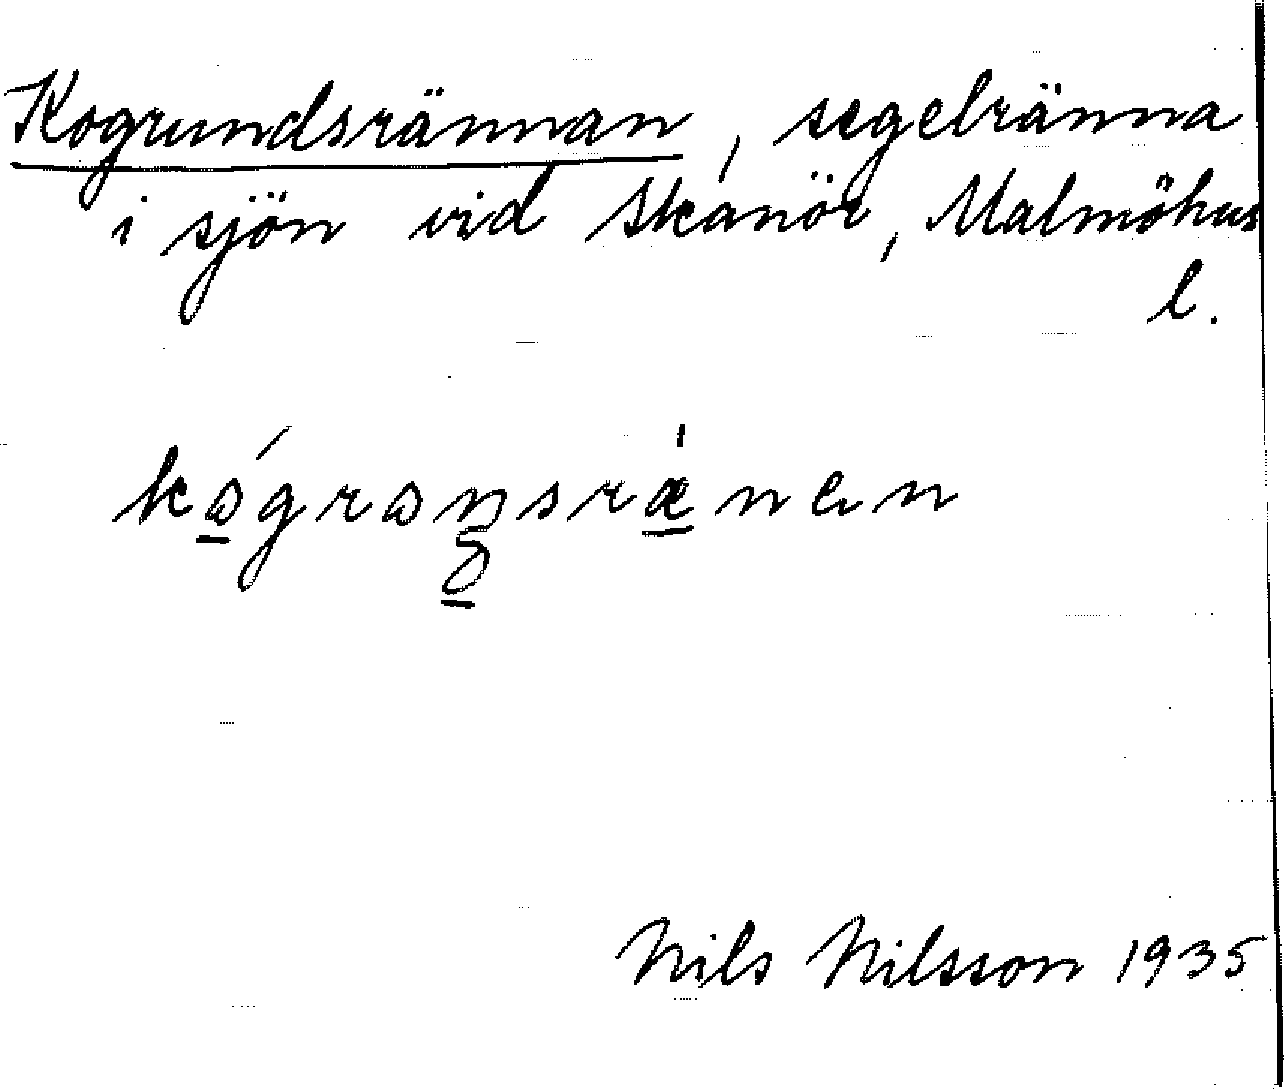 Kogrundsrännan, segelränna
i sjön vid Skanör, Malmöhus
l.
Nils Nilsson 1935